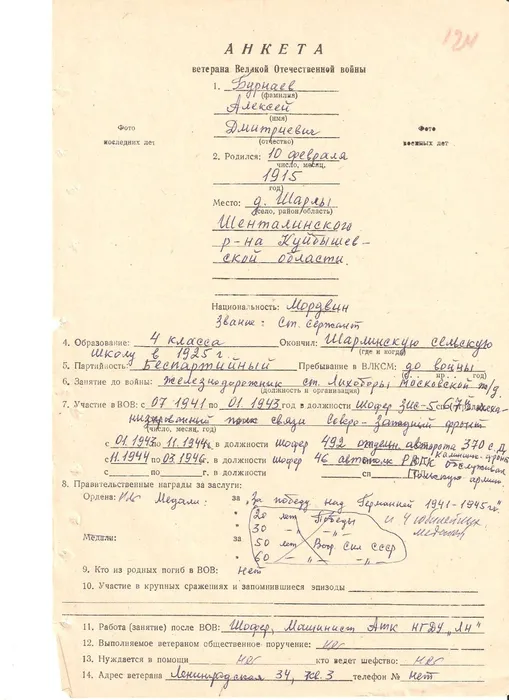 12И
АНКЕТА
ветерана Великой Отечественной войны
1. Бурнаев
(фамилия)
Алексей
(имя)
Фото
последних лет
Фото
военных лет
Дмитриевич
(отчество)
2. Родился: 10 февраля
число, месяц,
1915
год)
Место: д. Шарлы
(село, район/область)
Шенталинского
р-на Куйбышев-
ской области.
Национальность: Мордвин
Звание: Ст. Сержант
4. Образование: 4 класса Окончил: Шарлинскую сельскую
(где и когда)
школу в 1925 г.
5. Партийность: Беспартийный Пребывание в ВЛКСМ: до войны
6. Занятие до войны: железнодорожник ст. Лихоборы Московской ж/д.
(должность и организация)
7. Участие в ВОВ: с 07.1941 по 01.1943 год в должности Шофер ЗИС-5
связи Северо-Западный фронт
(число, месяц, год)
с 01.1943 по 11.1944г. в должности шофер 492 автарота 370 с.Д.
с 11.1944 по 03.1946. в должности шофер 46 автополк РВГК обслуживал
с по г. в должности сп Польскую армию
8. Правительственные награды за заслуги:
Ордена: нет Медали: за „За победу над Германией 1941-1945гг"
" 20 лет Победы и 4 юбилейных
" 30 " —„— медали
Медали: за 50 лет Воор. Сил СССР
" 60 —„— —„—
9. Кто из родных погиб в ВОВ: нет
10. Участие в крупных сражениях и запомнившиеся эпизоды
11. Работа (занятие) после ВОВ: Шофер, Машинист АТК НГДУ „ЛН"
12. Выполняемое ветераном общественное поручение: нет
13. Нуждается в помощи нет кто ведет шефство: нет
14. Адрес ветерана Ленинградская 34, кв. 3 телефон № нет